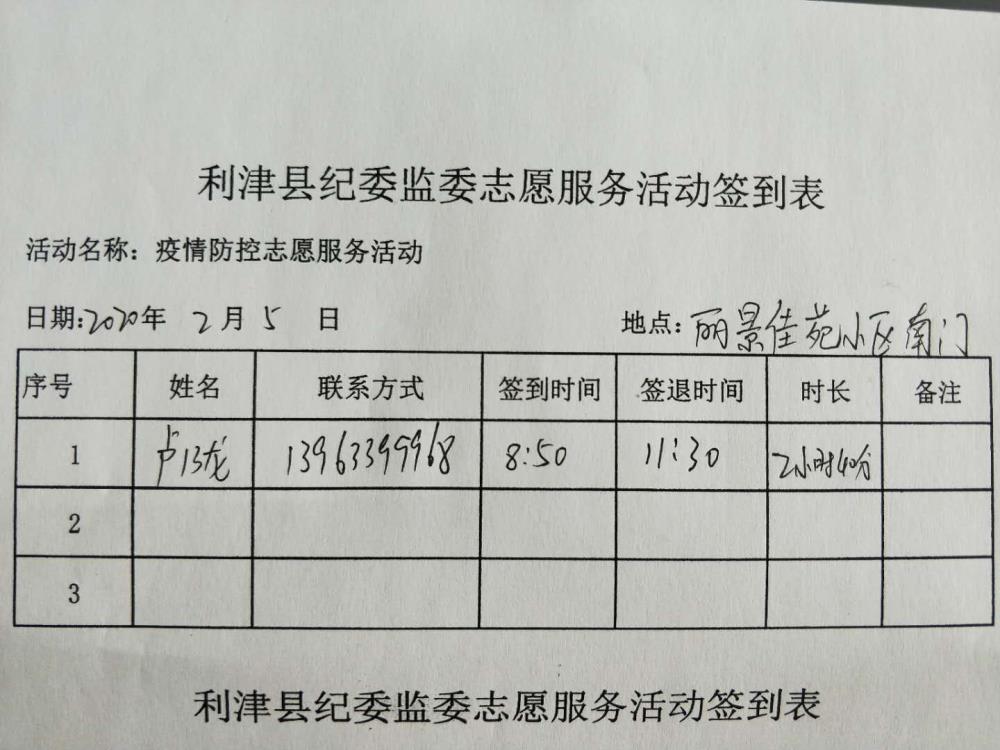 利津县纪委监委志愿服务活动签到表
活动名称：疫情防控志愿服务活动
日期:2020年 2月 5 日 地点:丽景佳苑小区南门
序号 姓名 联系方式 签到时间 签退时间 时长 备注
1 卢 龙 13963399968 8:50 11:30 2小时40分
2
3
利津县纪委监委志愿服务活动签到表